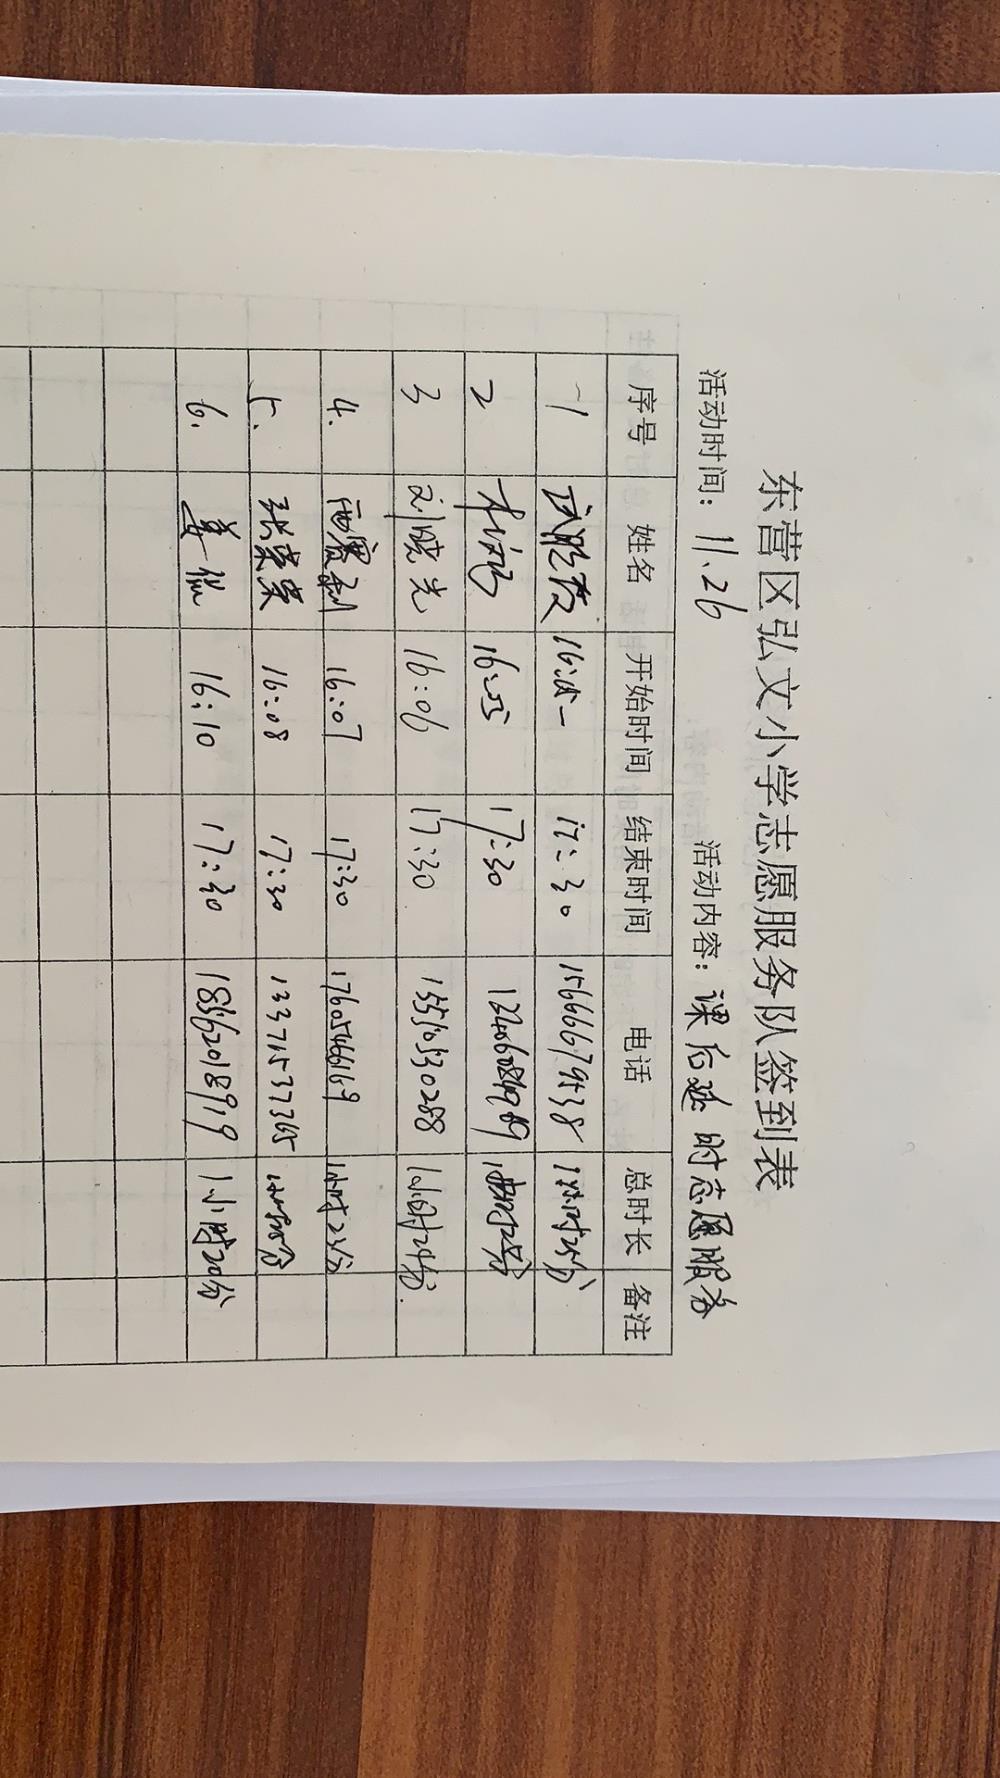 东营区弘文小学志愿服务队签到表
活动时间：11.26 活动内容：课后延时志愿服务
序号 姓名 开始时间 结束时间 电话 总时长 备注
1 17:30 15666679538 1小时25分
2 16:05 17:30
3 刘晓光 16:06 17:30 15510530288 1小时24分.
4. 16:07 17:30 17605466169 1小时23分
5. 张荣荣 16:08 17:30 13371537365
6. 姜 16:10 17:30 18562018919 1小时20分